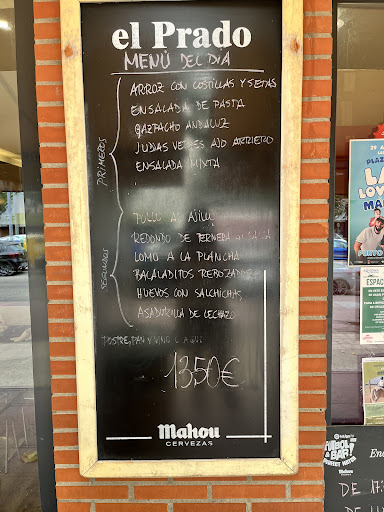 el Prado
MENÚ DEL DIA
PRIMEROS
ARROZ CON COSTILLAS Y SETAS
ENSALADA DE PASTA
GAZPACHO ANDALUZ
JUDIAS VERDES AJO ARRIERO
ENSALADA MIXTA
SEGUNDOS
POLLO AL AJILLO
REDONDO DE TERNERA
LOMO A LA PLANCHA
BACALADITOS REBOZADOS
HUEVOS CON SALCHICHAS
ASADURILLA DE LECHAZO
POSTRE, PAN Y VINO O AGUA
1350€
Mahou
CERVEZAS
29 A
PLAZ
LA
LO
MA
ESPAC
FUTBOL
& BAR!
Mahou
En
DE 17:
DE